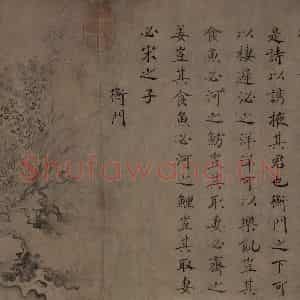 是詩以誘掖其君也衡門之下可
以棲遲泌之洋洋可以樂飢豈其
食魚必河之魴豈其取妻必齊之
姜豈其食魚必河之鯉豈其取妻
必宋之子
衡門
Shufawang.CN